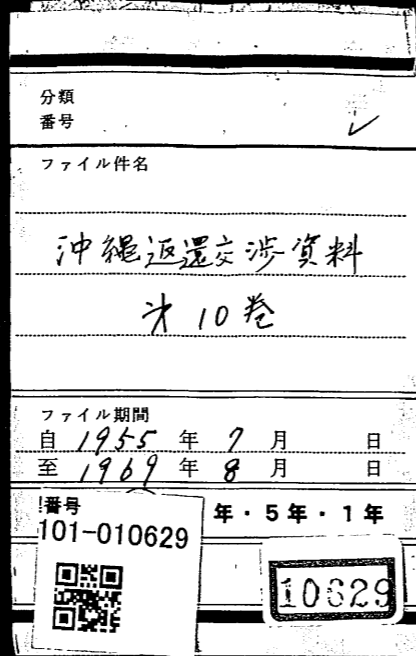 分類
番号
ファイル件名
沖縄返還交渉資料
才10巻
ファイル期間
自 1955 年 7 月 日
至 1969 年 8 月 日
番号
101-010629
年・5年・1年
10629